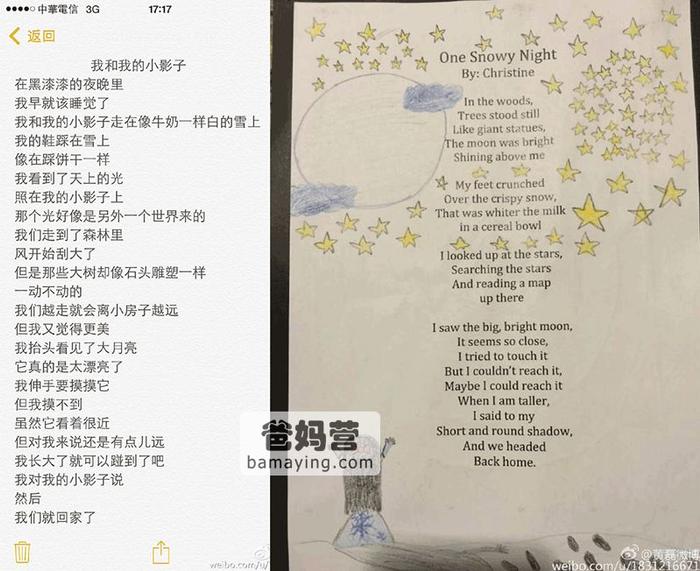 中華電信 3G 17:17
返回
我和我的小影子
在黑漆漆的夜晚里
我早就该睡觉了
我和我的小影子走在像牛奶一样白的雪上
我的鞋踩在雪上
像在踩饼干一样
我看到了天上的光
照在我的小影子上
那个光好像是另外一个世界来的
我们走到了森林里
风开始刮大了
但是那些大树却像石头雕塑一样
一动不动的
我们越走就会离小房子越远
但我又觉得更美
我抬头看见了大月亮
它真的是太漂亮了
我伸手要摸摸它
但我摸不到
虽然它看着很近
但对我来说还是有点儿远
我长大了就可以碰到了吧
我对我的小影子说
然后
我们就回家了
weibo.com/u/
One Snowy Night
By: Christine
In the woods,
Trees stood still
Like giant statues,
The moon was bright
Shining above me
My feet crunched
Over the crispy snow,
That was whiter the milk
in a cereal bowl
I looked up at the stars,
Searching the stars
And reading a map
up there
I saw the big, bright moon,
It seems so close,
I tried to touch it
But I couldn't reach it,
Maybe I could reach it
When I am taller,
I said to my
Short and round shadow,
And we headed
Back home.
爸妈营
bamaying.com
@黄磊微博
weibo.com/u/1831216671